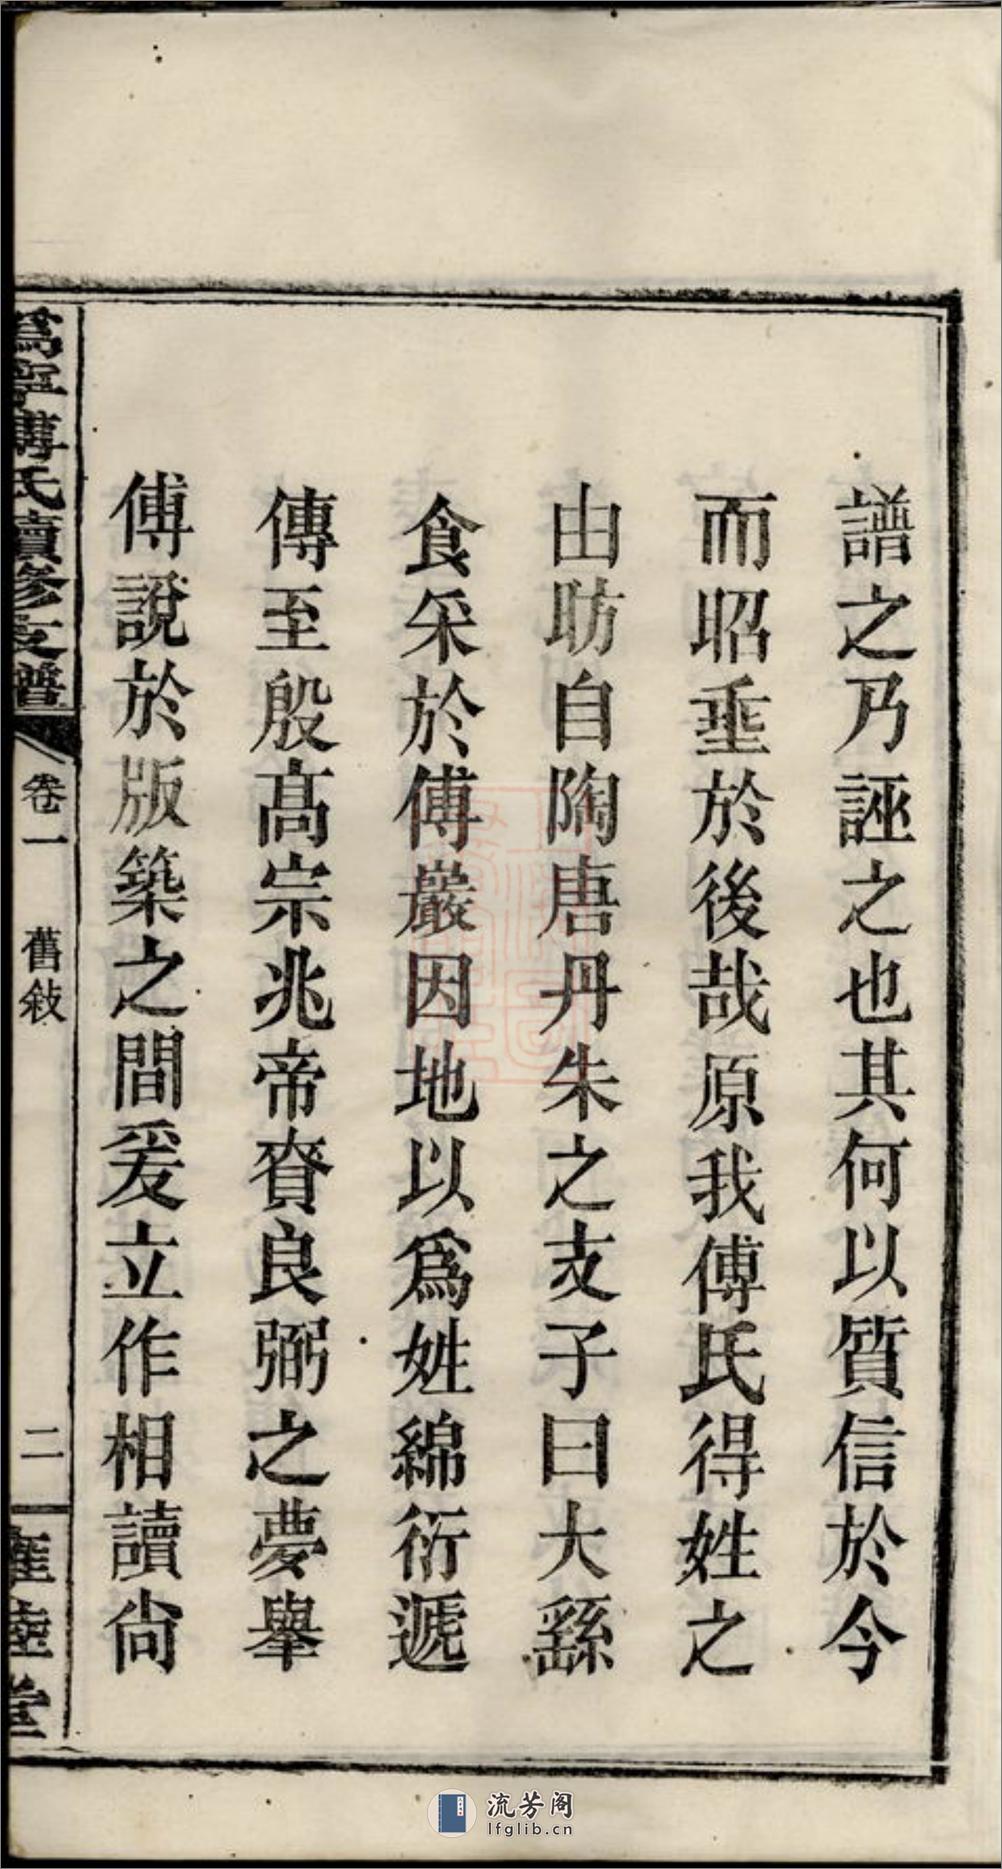 譜之乃誣之也其何以質信於今
而昭垂於後哉原我傅氏得姓之
由昉自陶唐丹朱之支子曰大繇
食采於傅巖因地以爲姓綿衍遞
傳至殷高宗兆帝賚良弼之夢舉
傅說於版築之間爰立作相讀尙
爲寧傅氏續修支譜
卷一
舊敍
二
雍睦堂
流芳阁
lfglib.cn